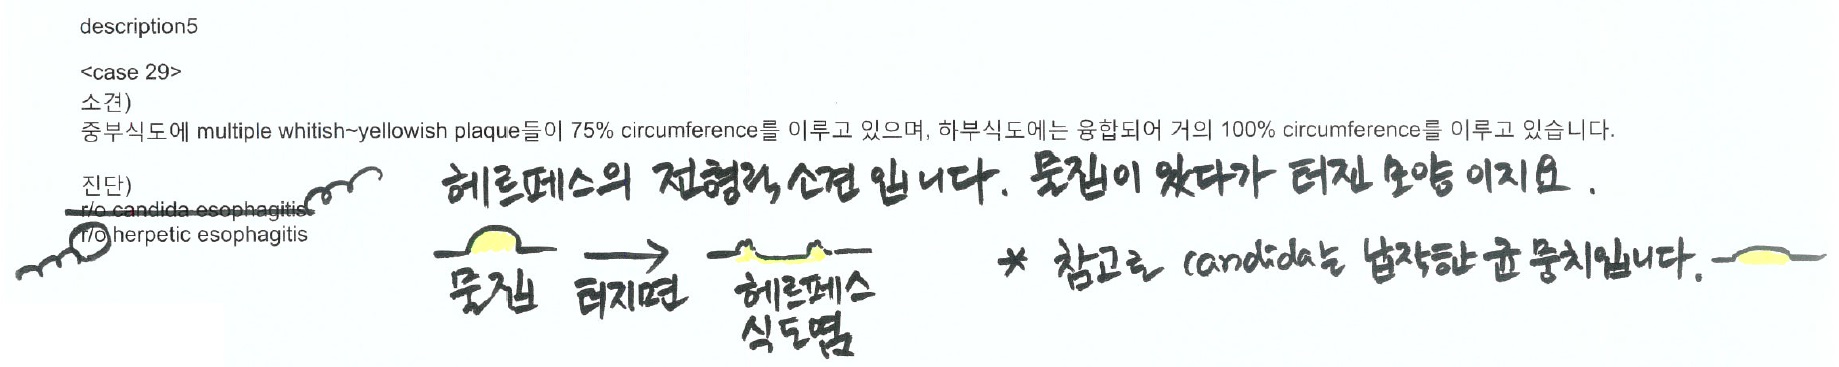 description5
<case 29>
소견)
중부식도에 multiple whitish~yellowish plaque들이 75% circumference를 이루고 있으며, 하부식도에는 융합되어 거의 100% circumference를 이루고 있습니다.
진단)
헤르페스의 전형적 소견입니다. 물집이 있다가 터진 모양이지요.
r/o candida esophagitis
r/o herpetic esophagitis
물집 터지면 헤르페스 식도염
* 참고로 candida는 납작한 균 뭉치입니다.